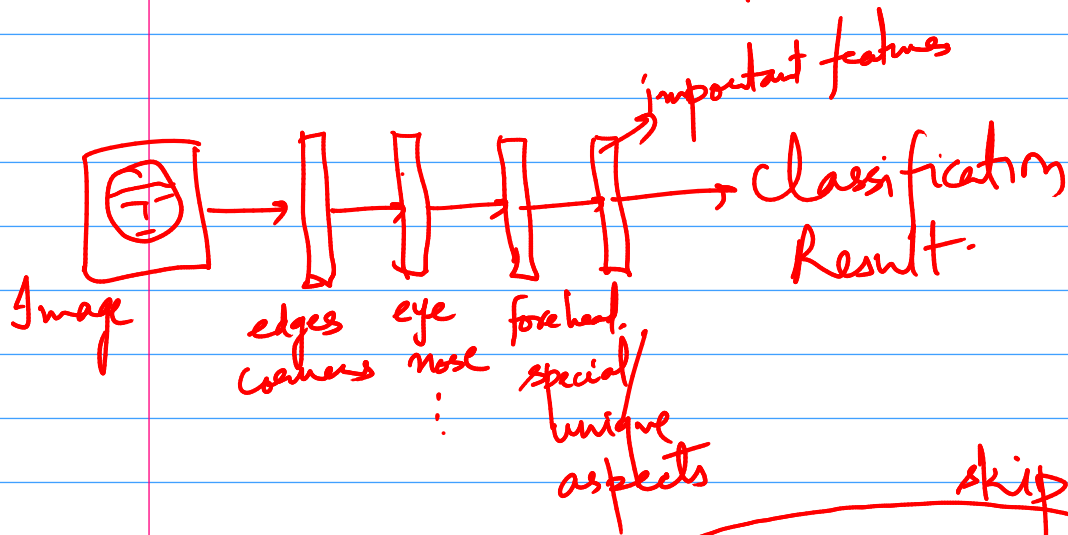 important features
Classification
Result.
Image
edges
corners
eye
nose
forehead.
special
unique
aspects
skip